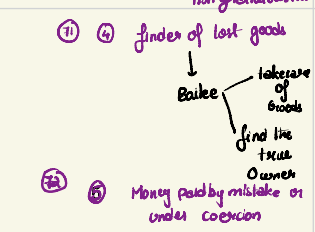 71 4 finder of lost goods
Bailee
takecare
of
Goods
find the
true
Owner
72 5 Money paid by mistake or
under coercion